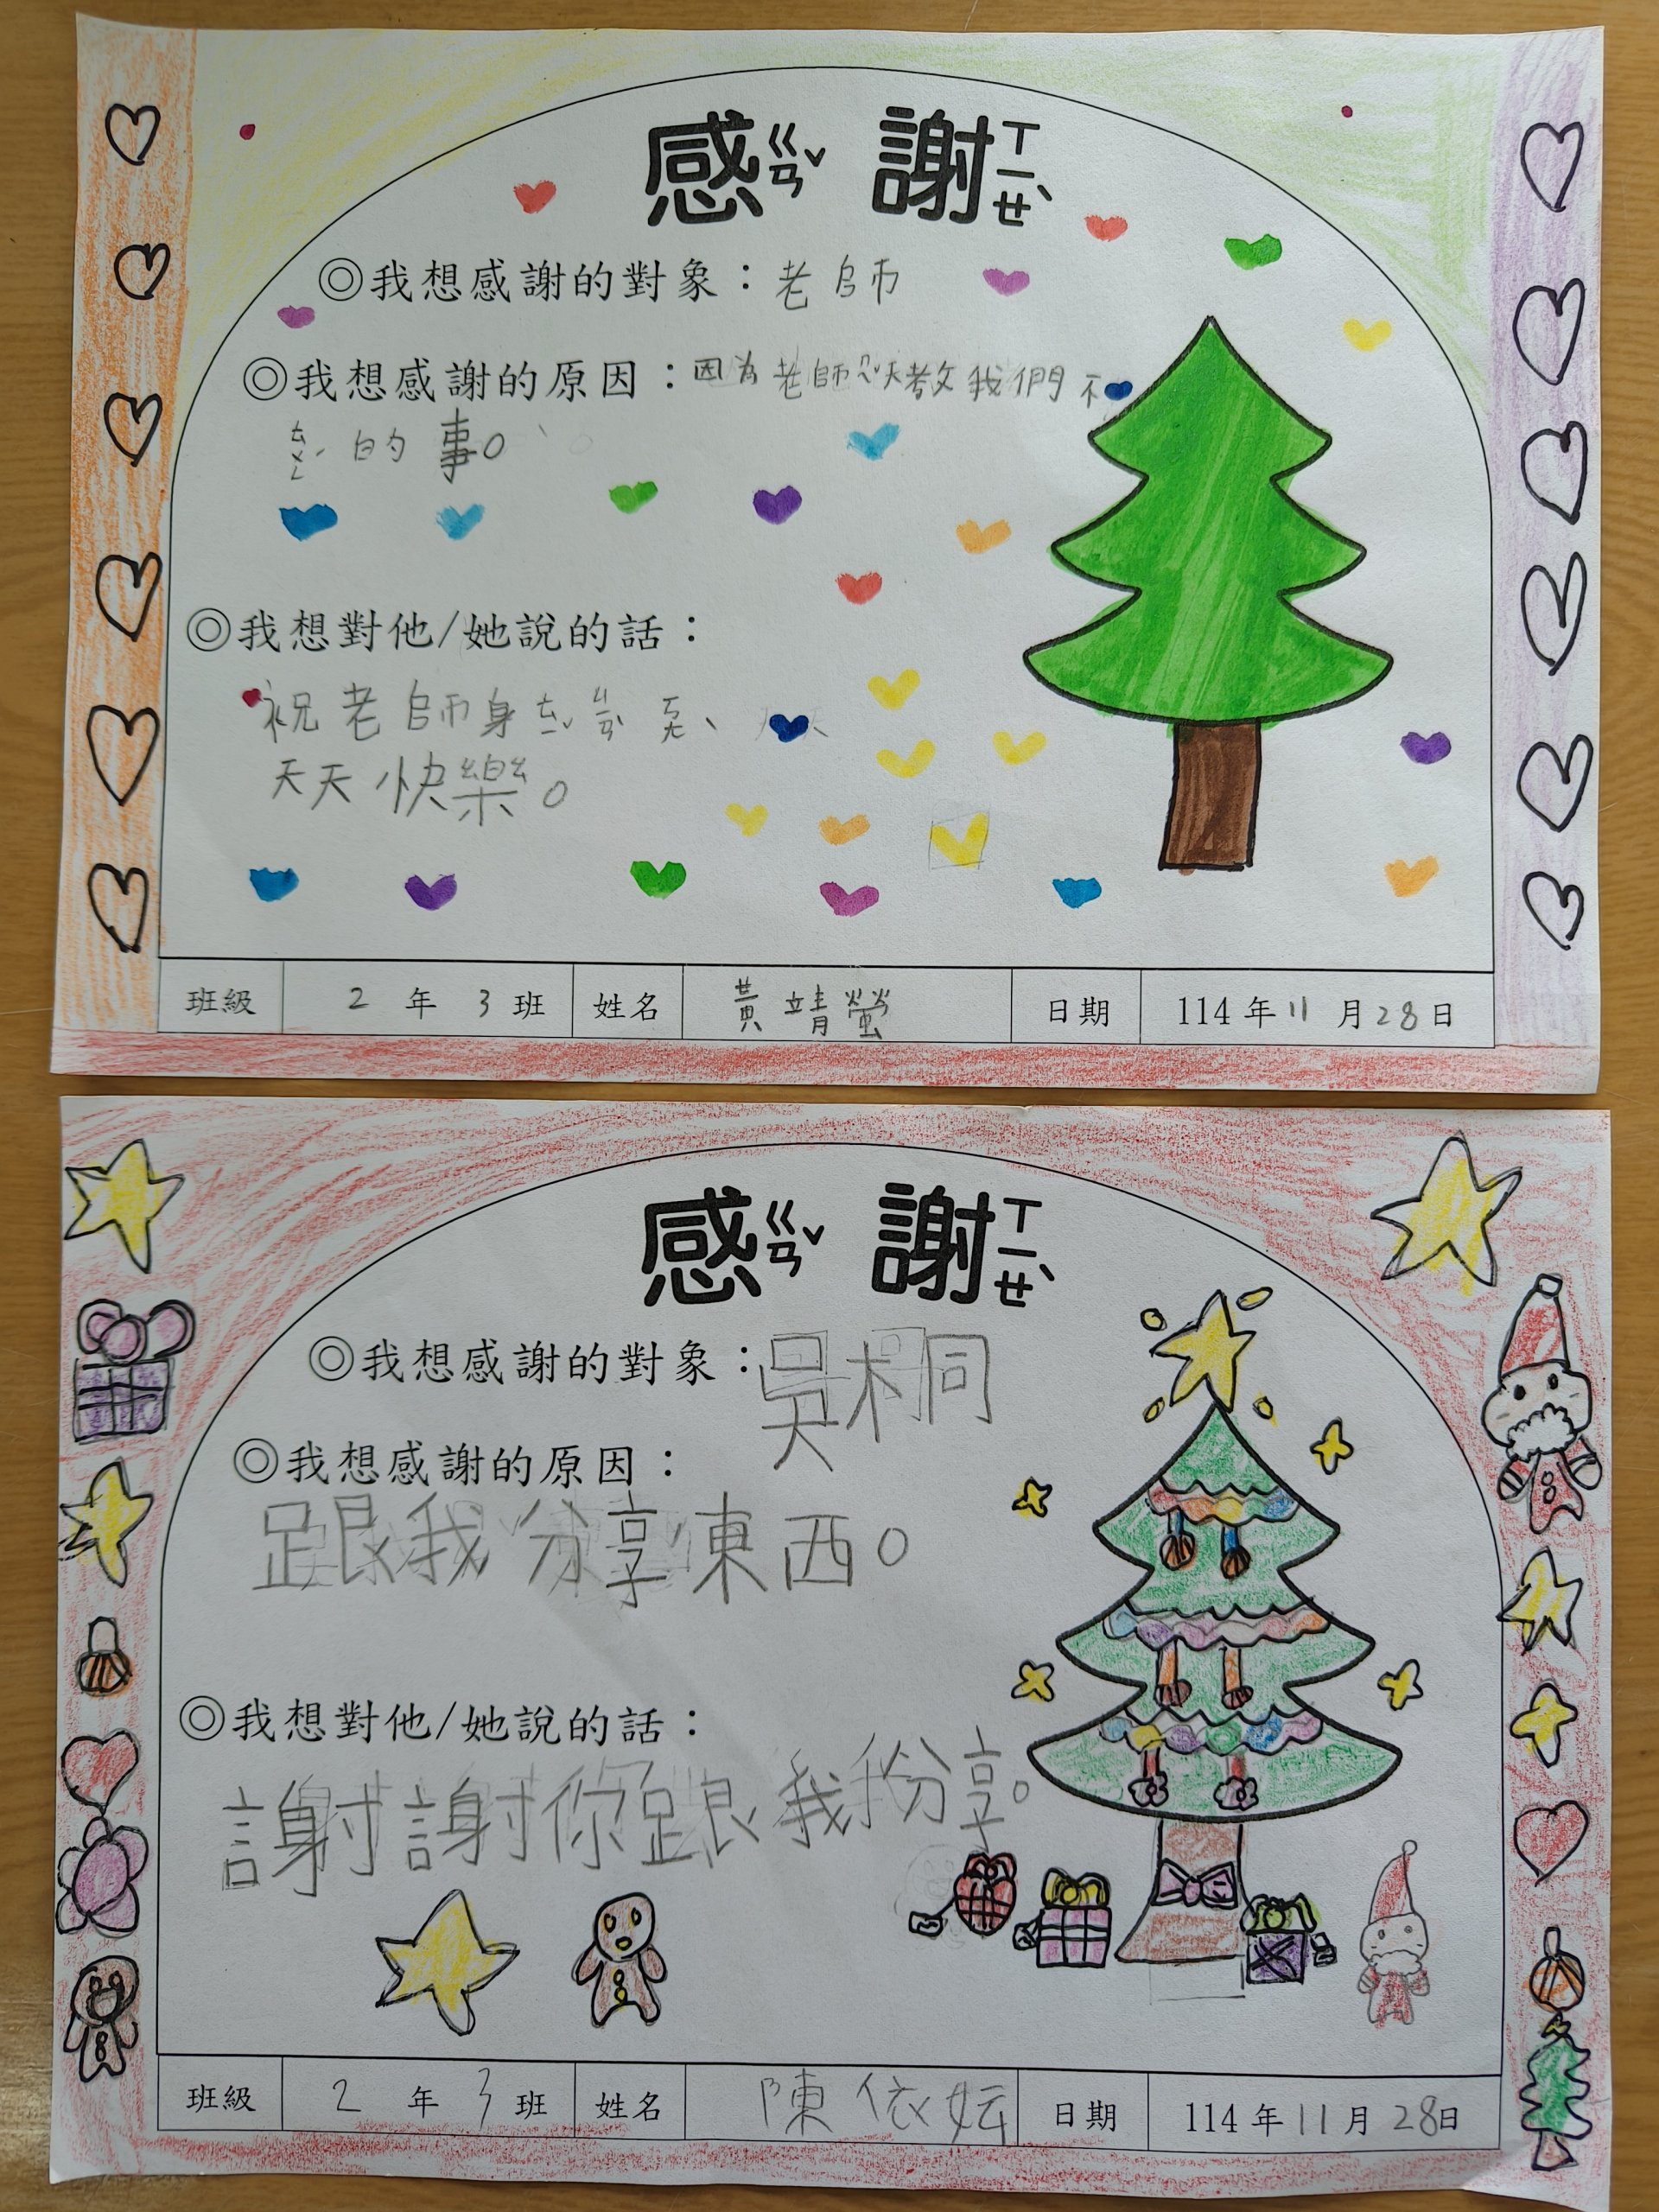 感ㄍㄢˇ 謝ㄒㄧㄝˋ
◎我想感謝的對象：老師
◎我想感謝的原因：因為老師 教我們不
ㄊㄨㄥˊ的事。
◎我想對他/她說的話：
祝老師身ㄊㄧˇㄐㄧㄢˋ
天天快樂。
班級 2年3班 姓名 黃靖螢 日期 114年11月28日
感ㄍㄢˇ 謝ㄒㄧㄝˋ
◎我想感謝的對象：吳桐
◎我想感謝的原因：
跟我分享東西。
◎我想對他/她說的話：
謝謝你跟我分享。
班級 2年3班 姓名 陳依妘 日期 114年11月28日